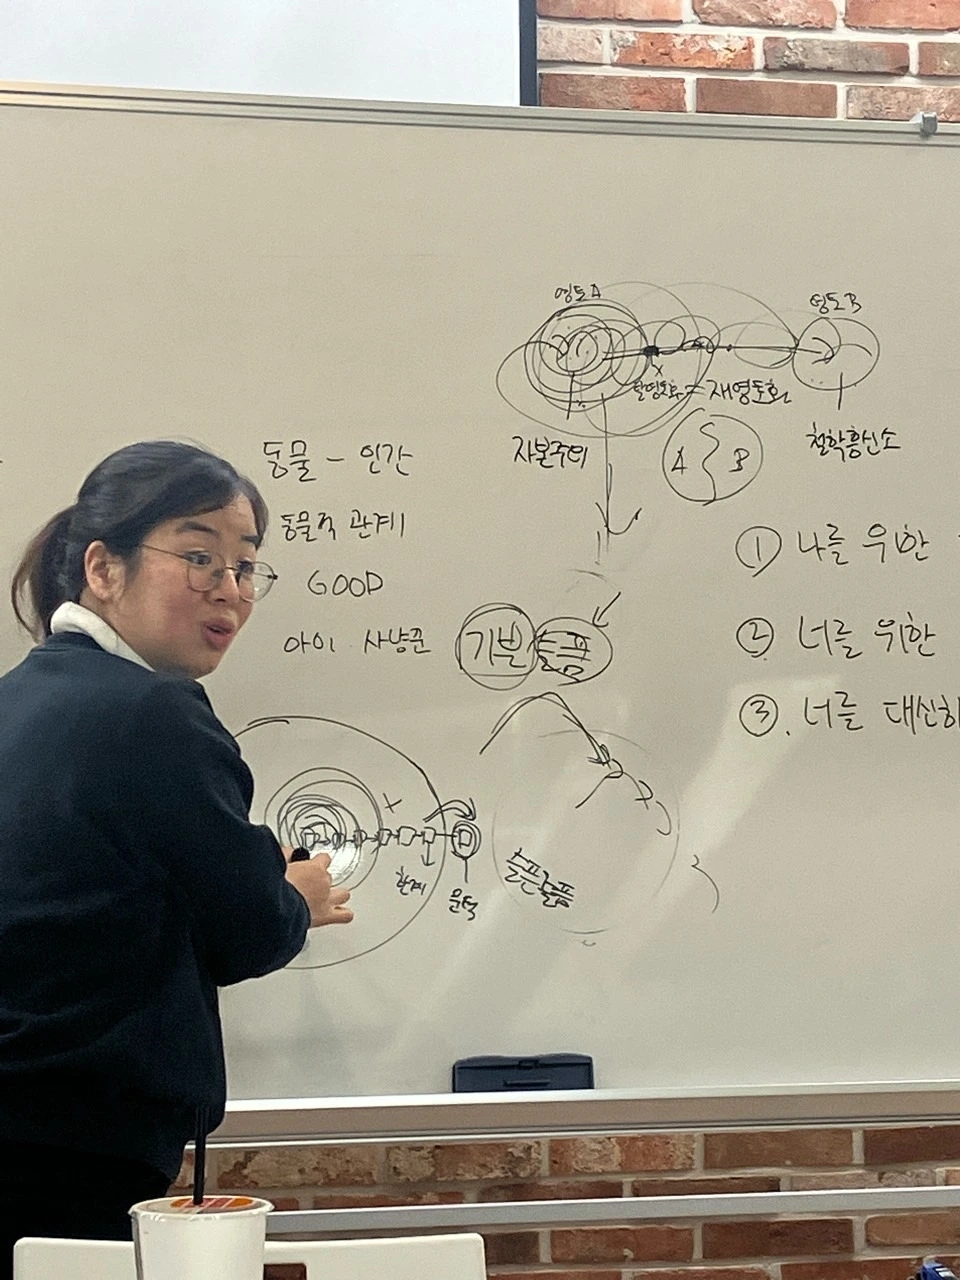 영토A
영토B
탈영토화 = 재영토화
자본주의
A B
철학흥신소
동물 - 인간
동물적 관계
GOOD
아이 사냥꾼
기분
슬픔
① 나를 위한
② 너를 위한
③ 너를 대신
한계
문턱